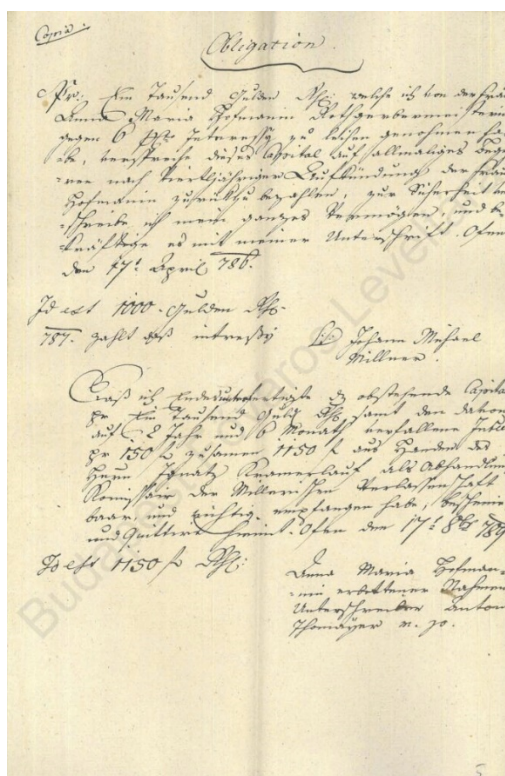 Copia
Obligation.
Pr: Ein Tausend Gulden Rh: welche ich von der Frau
Anna Maria Hofmanin Rothgerbermeisterin
gegen 6 pct Interesse zu leihen genohmen ha
be, verspreche dieses Capital auf allmaliges Bege
ren nach vierteljähriger Aufkündung der Frau
Hofmanin zurückzubezahlen, zur Sicherheit ver
schreibe ich mein ganzes Vermögen, und be
kräftige es mit meiner Unterschrift. Ofen
den 17t April 786.
Id est 1000. Gulden Rh:
787. zahlt das intresse
Johann Michael
Millner.
Daß ich Endesunterfertigte obstehende Capital
pr Ein Tausend Guld Rh samt den davon
auf 2 Jahr und 6 Monath verfallene Intere
pr 150 f zusamen 1150 f aus Handen des
Herrn Ignatz Kramerlauf als Abhandlun
Komissair der Millerischen Verlassenschaft
baar, und richtig empfangen habe, bescheine
und Quittire hiemit. Ofen den 17t 8ber 789
Id est 1150 f Rh:
Anna Maria Hofman
nin erbettener Nahmens
Unterschreiber Anton
Thomayer m. p.